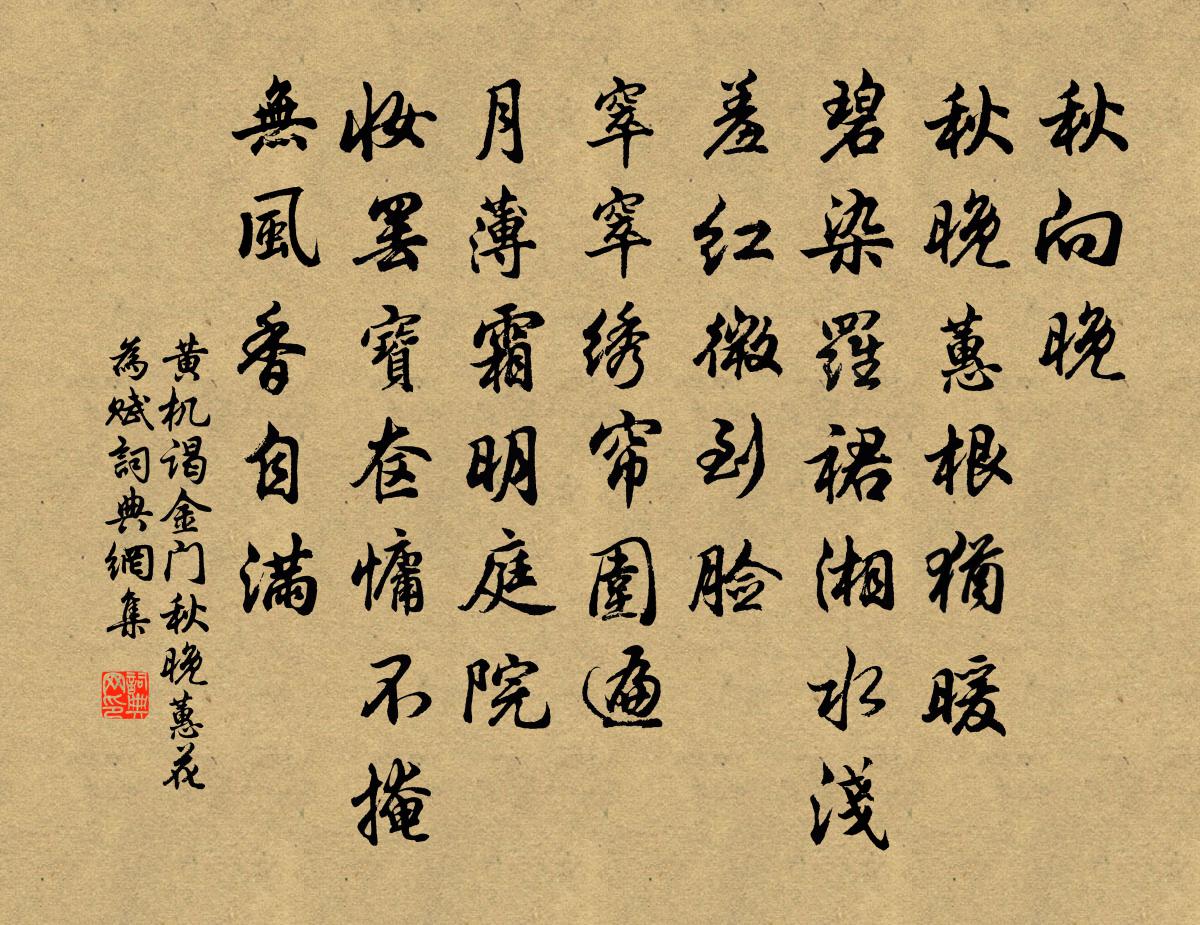 秋向晚
秋晚蕙根猶暖
碧染羅裙湘水淺
羞红微到脸
窣窣绣帘圍遍
月薄霜明庭院
妆罢寶奁慵不掩
無風香自满
黄机谒金门秋晚蕙花
為赋詞典網集
詞典网印